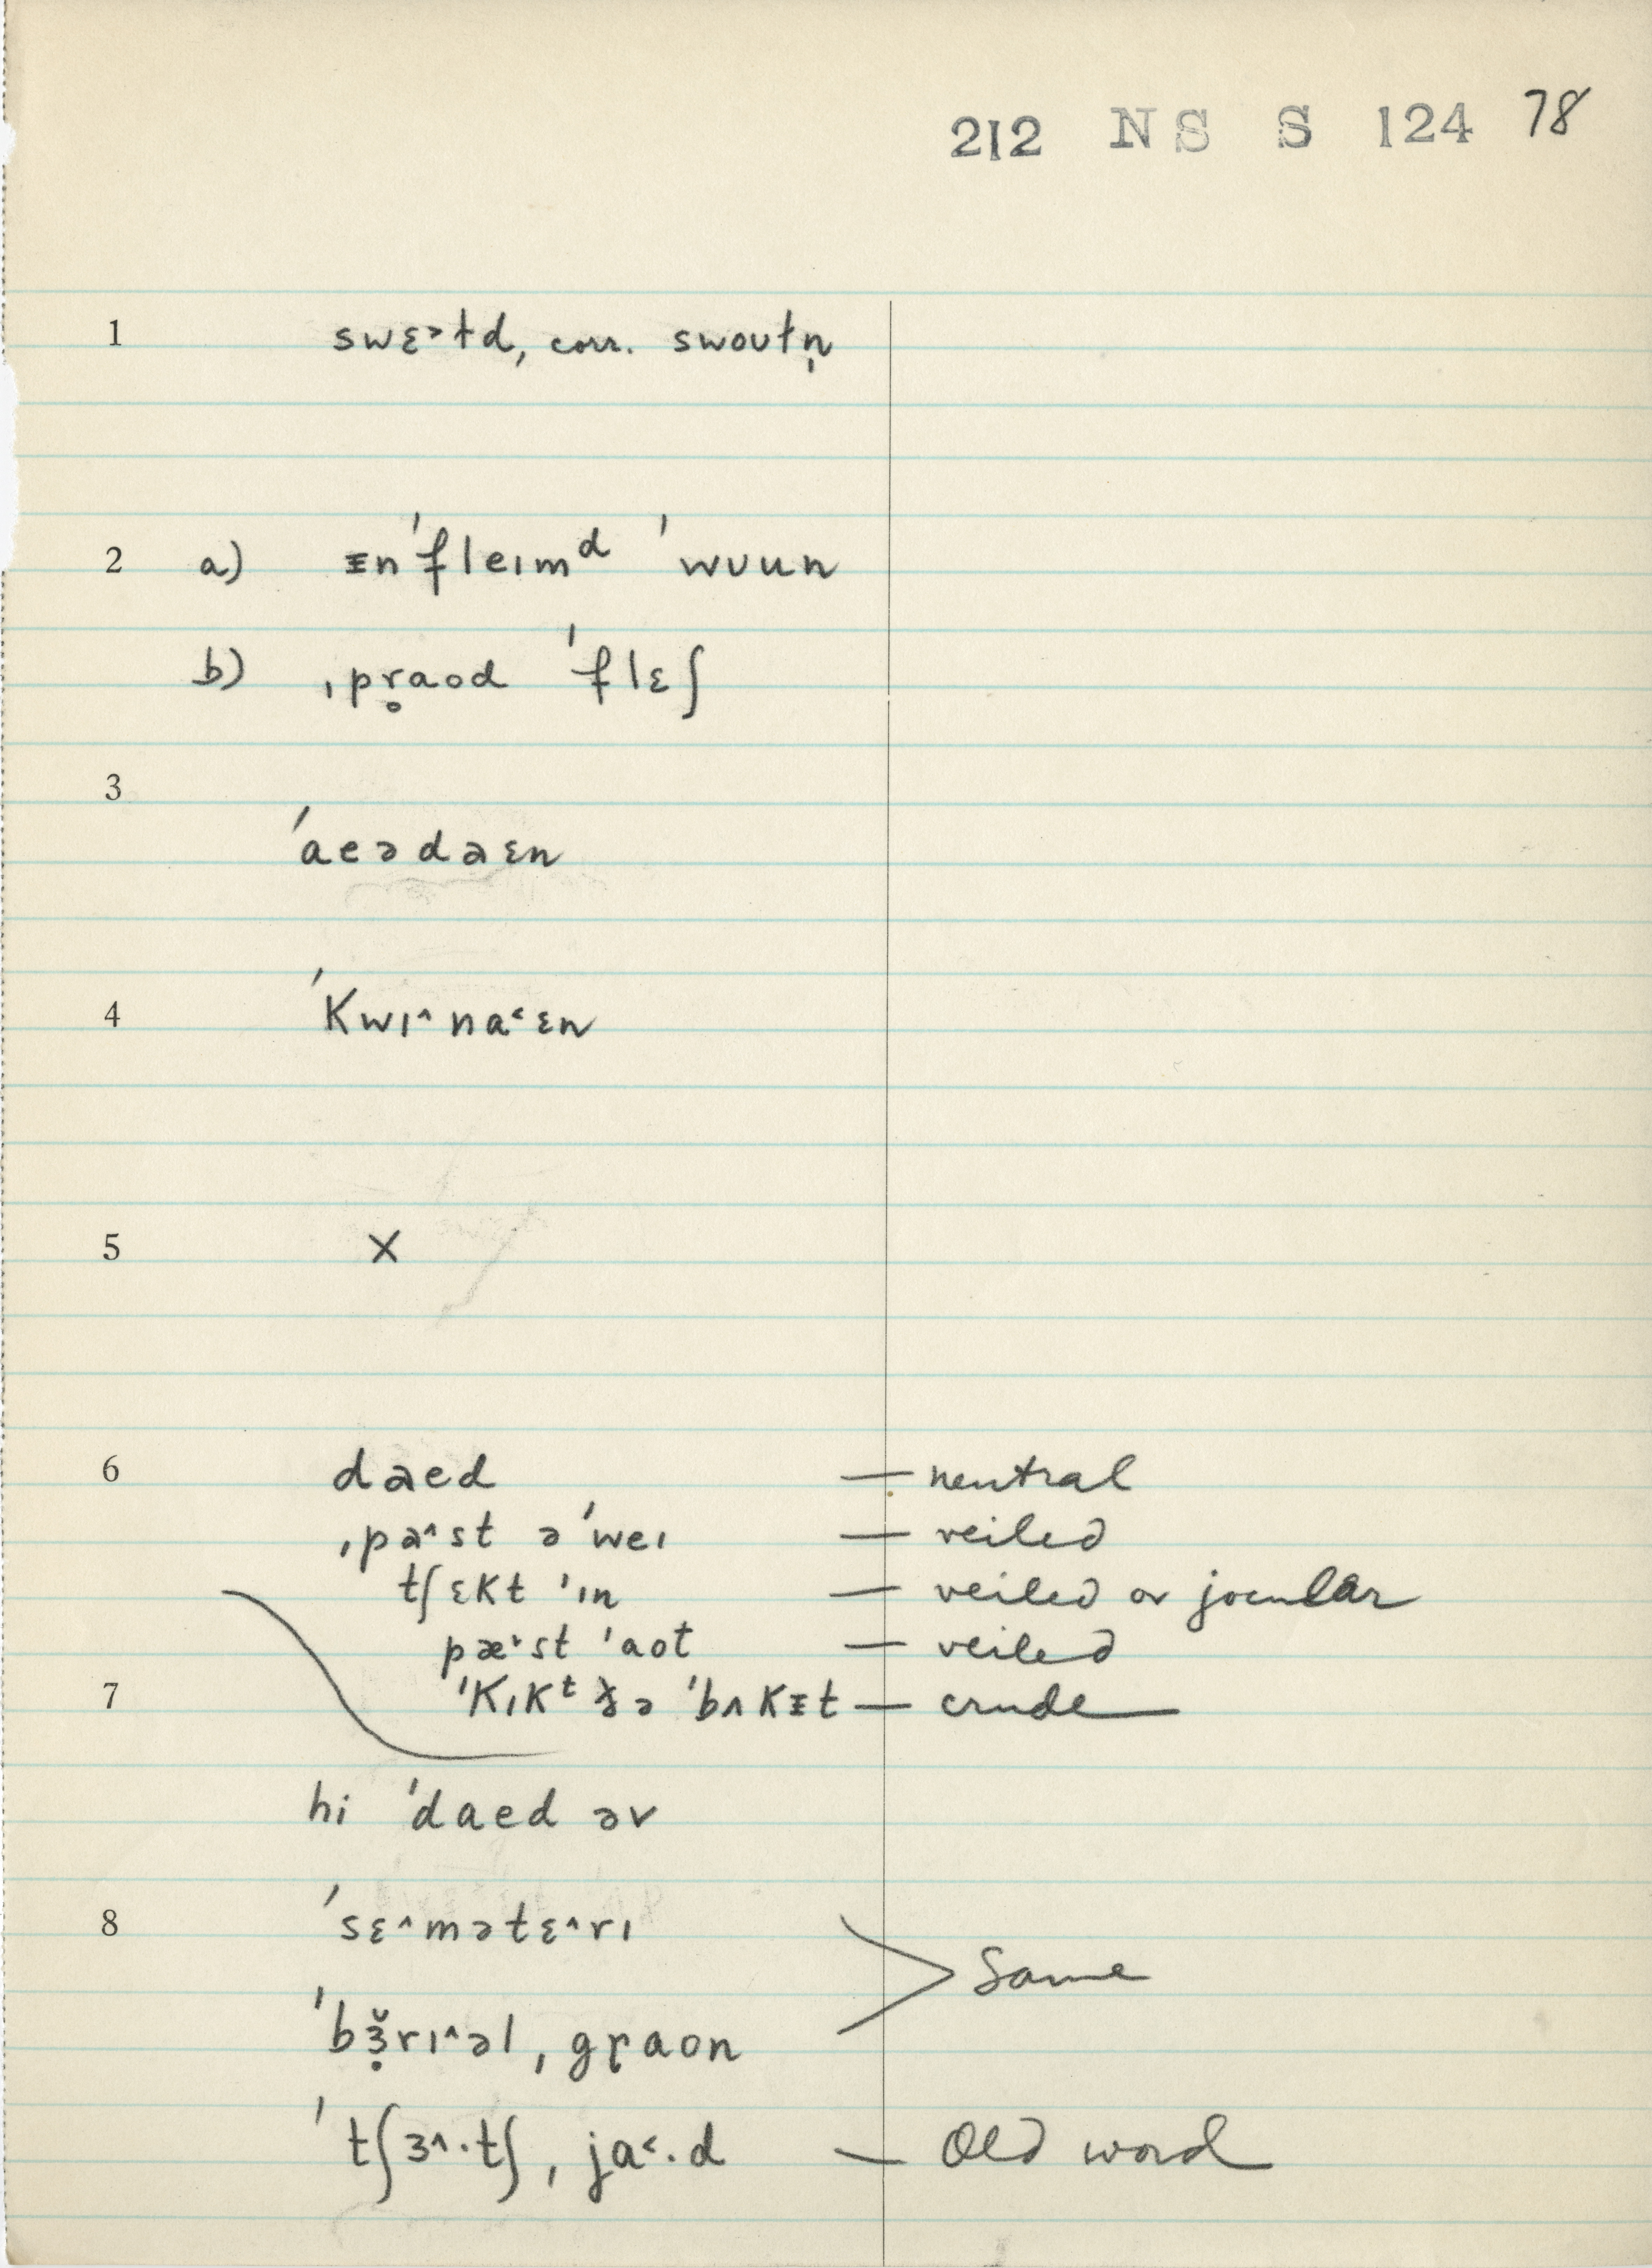 212 NS S 124 78
1 swɛ˃ƚd, corr. swoʊƚn̩
2 a) ᵻnˈfleɪmᵈ ˈwʊun
b) ˌpr̥aod ˈflɛʃ
3
ˈaeədaɛn
4 ˈkwɪ˄na˂ɛn
5 X
6 daed — neutral
ˌpa˄st əˈweɪ — veiled
tʃɛkt ˈɪn — veiled or jocular
pæ˅st ˈaot — veiled
7 ˈkɪkᵗ ðə ˈbʌkᵻt — crude
hi ˈdaed əv
8 ˈsɛ˄mətɛ˄rɪ
Same
ˈbɜ̣̌rɪ˄əl ˌgr̥aon
ˈtʃɜ˄·tʃ ˌja˂·d — Old word